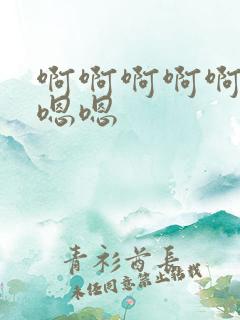 啊啊啊啊啊
嗯嗯
青衫酋长
未经同意禁止搭载